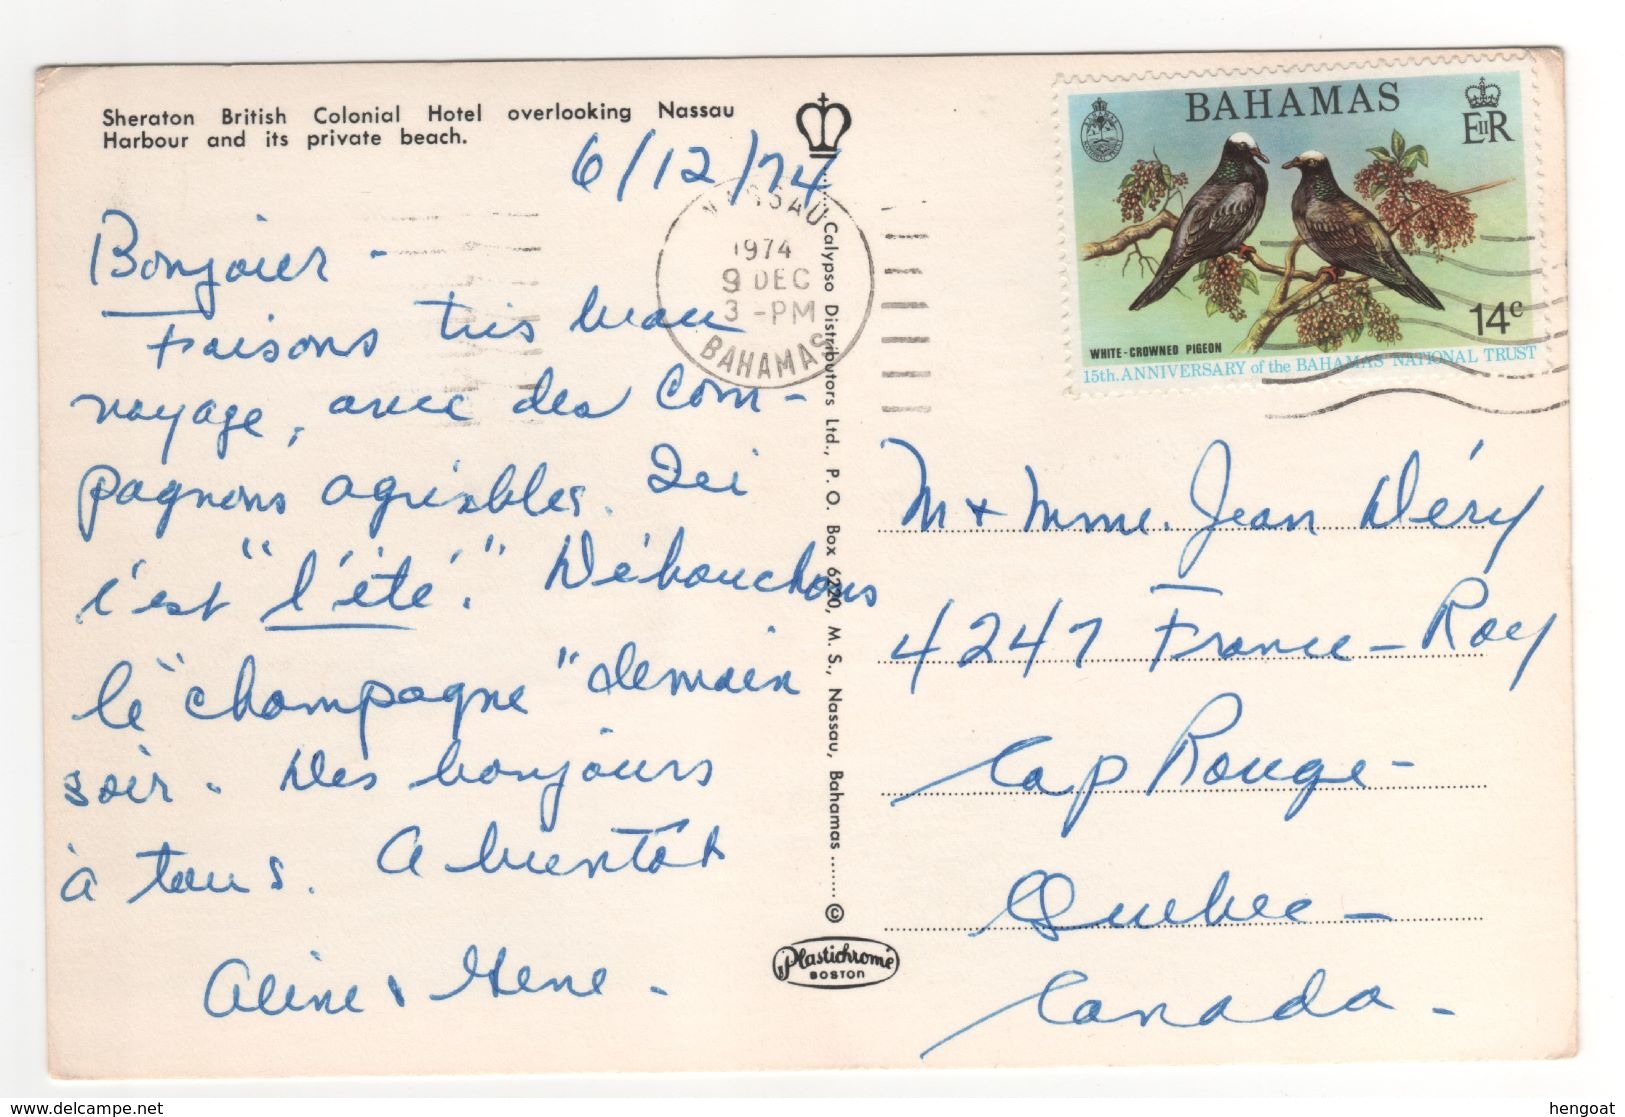 Sheraton British Colonial Hotel overlooking Nassau
Harbour and its private beach.
6/12/74
Bonjour -
Faisons très beau
voyage, avec des com-
pagnons agréables. Ici
c'est "l'été." Débouchons
le "champagne" demain
soir. Des bonjours
à tous. A bientôt
Aline & Gene.
NASSAU
1974
9 DEC
3-PM
BAHAMAS
Calypso Distributors Ltd., P. O. Box 6220, M. S., Nassau, Bahamas ...... ©
Plastichrome
BOSTON
BAHAMAS
EIIR
14c
WHITE-CROWNED PIGEON
15th. ANNIVERSARY of the BAHAMAS NATIONAL TRUST
M + Mme. Jean Déry
4247 France-Roy
Cap Rouge -
Quebec -
Canada -
www.delcampe.net
hengoat